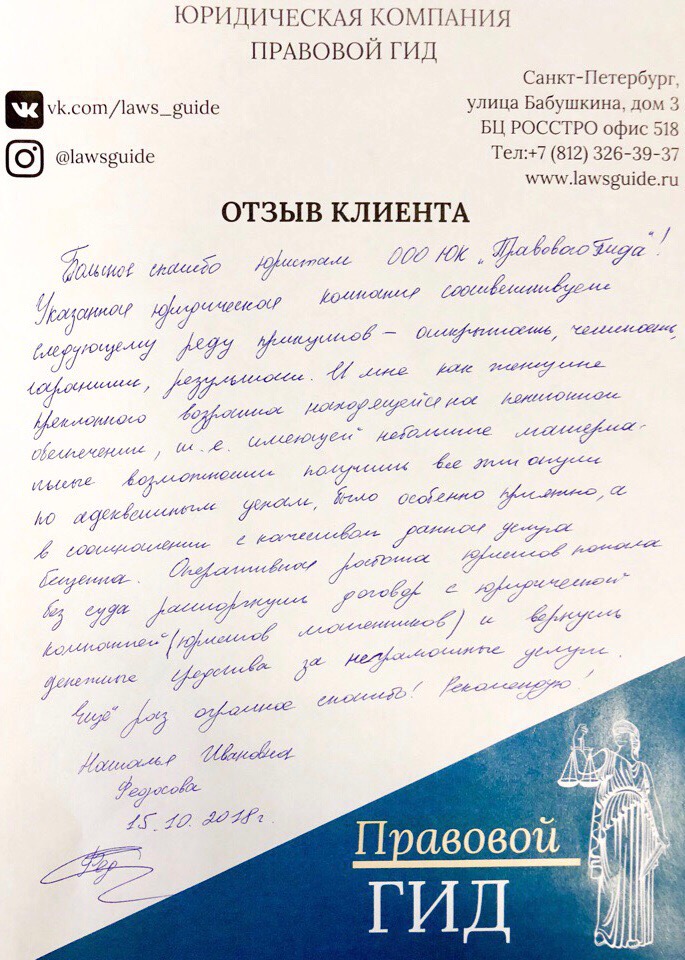 ЮРИДИЧЕСКАЯ КОМПАНИЯ
ПРАВОВОЙ ГИД
Санкт-Петербург,
улица Бабушкина, дом 3
БЦ РОССТРО офис 518
Тел:+7 (812) 326-39-37
www.lawsguide.ru
vk.com/laws_guide
@lawsguide
ОТЗЫВ КЛИЕНТА
Большое спасибо юристам ООО ЮК „Правового Гида"!
Указанная юридическая компания соответствует
следующему ряду принципов – открытость, честность,
гарантии, результат. И мне как женщине
преклонного возраста находящейся на пенсионном
обеспечении, т.е. имеющей небольшие материа-
льные возможности получить все эти опции
по адекватным ценам, было особенно приятно, а
в соотношении с качеством данная услуга
бесценна. Оперативная работа юристов помогла
без суда расторгнуть договор с юридической
компанией (юристов мошенников) и вернуть
денежные средства за неграмотные услуги.
Ещё раз огромное спасибо! Рекомендую!
Наталья Ивановна
Федосова
15.10.2018г.
Фед
Правовой
ГИД